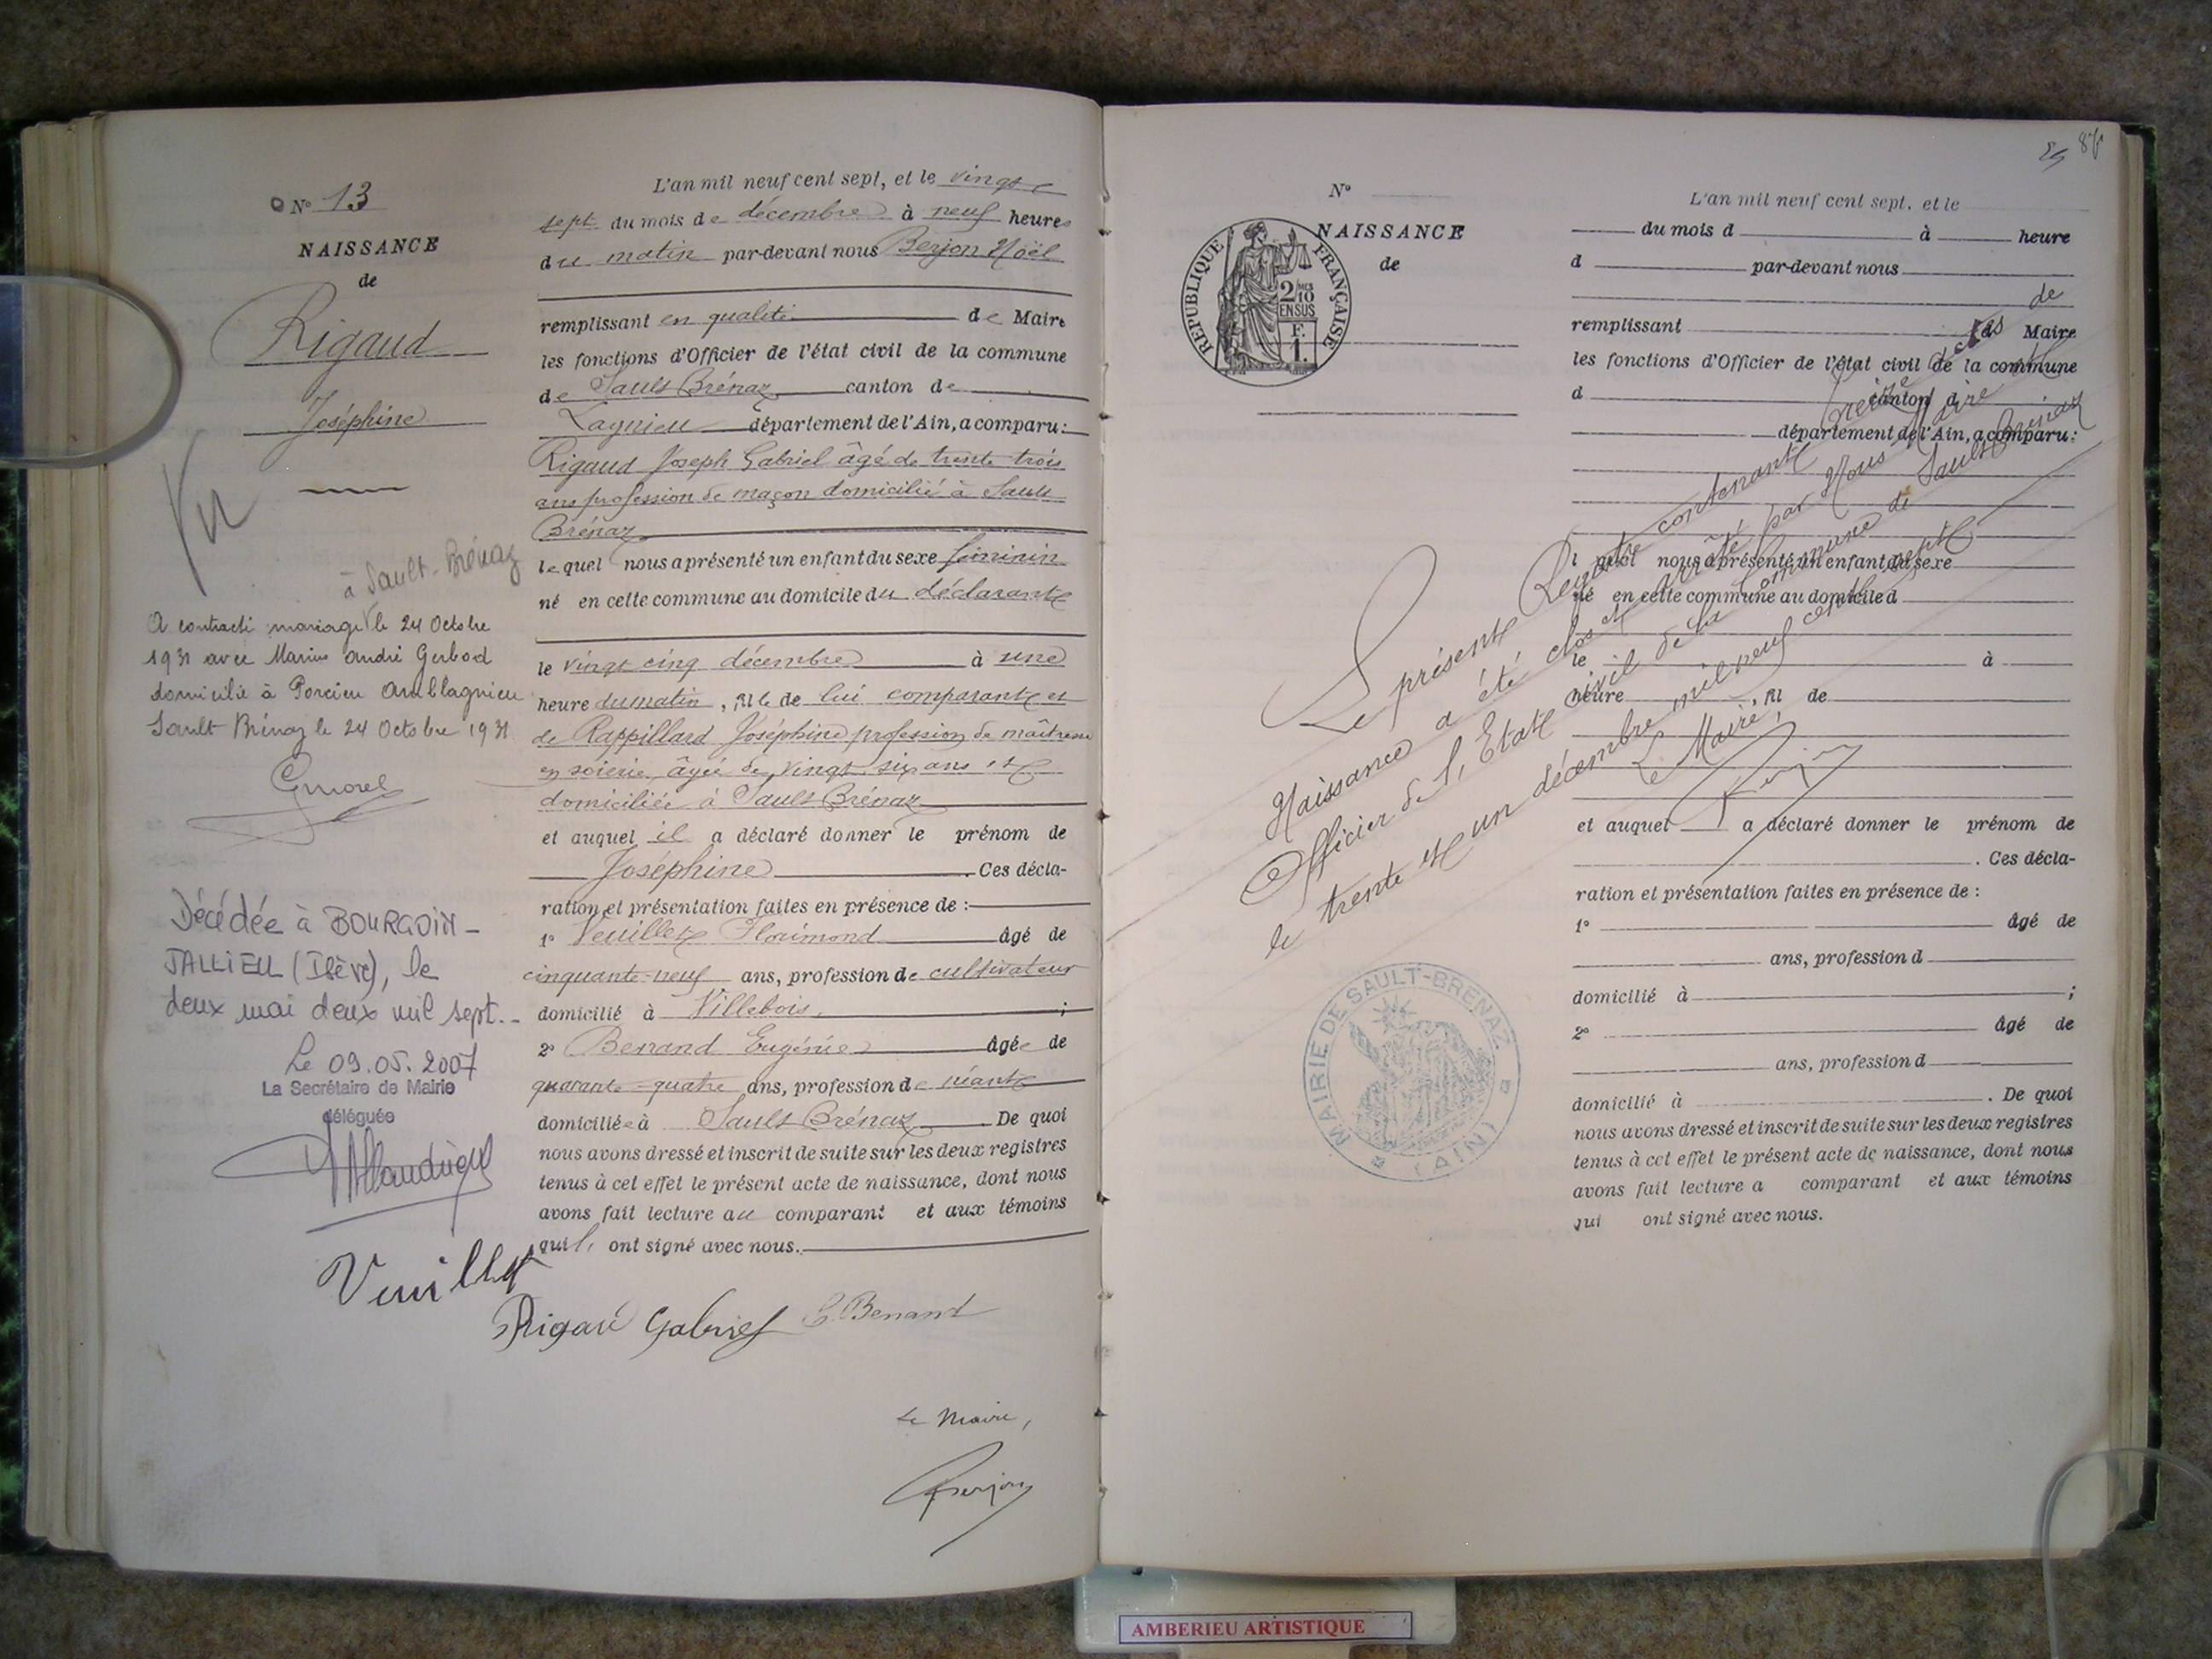 N° 13
NAISSANCE
de
Rigaud
Joséphine
Vu
à Sault-Brénaz
A contracté mariage le 24 Octobre
1931 avec Marius André Gerbod
domicilié à Porcieu Amblagnieu
Sault Brénaz le 24 Octobre 1931
Gmorel
Décédée à BOURGOIN-
JALLIEU (Isère), le
deux mai deux mil sept.-
Le 09.05.2007
La Secrétaire de Mairie
déléguée
L'an mil neuf cent sept, et le vingt
sept du mois de décembre à neuf heures
du matin par-devant nous Berjon Noël
remplissant en qualité de Maire
les fonctions d'Officier de l'état civil de la commune
de Sault Brénaz canton de
Lagnieu département de l'Ain, a comparu:
Rigaud Joseph Gabriel âgé de trente trois
ans profession de maçon domicilié à Sault
Brénaz
lequel nous a présenté un enfant du sexe féminin
né en cette commune au domicile du déclarant
le vingt cinq décembre à une
heure du matin, fille de lui comparant et
de Rappillard Joséphine profession de maîtresse
en soierie âgée de vingt six ans et
domiciliée à Sault Brénaz
et auquel il a déclaré donner le prénom de
Joséphine. Ces décla-
ration et présentation faites en présence de :
1° Veuillet Florimond âgé de
cinquante-neuf ans, profession de cultivateur
domicilié à Villebois ;
2° Benand Eugénie âgée de
quarante-quatre ans, profession de néant
domiciliée à Sault Brénaz. De quoi
nous avons dressé et inscrit de suite sur les deux registres
tenus à cet effet le présent acte de naissance, dont nous
avons fait lecture au comparant et aux témoins
qu'ils ont signé avec nous.
Veuillet
Rigaud Gabriel E Benand
Le Maire,
Berjon
85 86
N°
NAISSANCE
de
REPUBLIQUE FRANÇAISE
2/10
EN SUS
F.
1.
L'an mil neuf cent sept, et le
du mois d à heure
d par-devant nous
remplissant de Maire
les fonctions d'Officier de l'état civil de la commune
d canton d
département de l'Ain, a comparu:
l quel nous a présenté un enfant du sexe
né en cette commune au domicile d
le à
heure , fil de
et auquel a déclaré donner le prénom de
. Ces décla-
ration et présentation faites en présence de :
1° âgé de
ans, profession d
domicilié à ;
2° âgé de
ans, profession d
domicilié à . De quoi
nous avons dressé et inscrit de suite sur les deux registres
tenus à cet effet le présent acte de naissance, dont nous
avons fait lecture a comparant et aux témoins
qui ont signé avec nous.
Le présent Registre contenant treize actes de
Naissance a été clos et arrêté par Nous Maire
Officier de l'Etat civil de la Commune de Sault Brénaz
le trente et un décembre mil neuf cent sept
Le Maire,
Berjon
MAIRIE DE SAULT-BRENAZ
(AIN)
AMBERIEU ARTISTIQUE